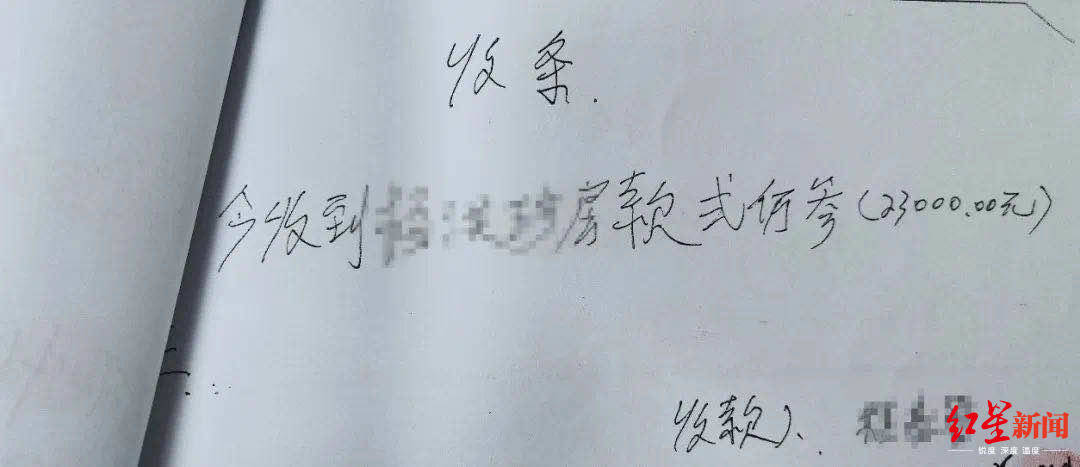 收条.
今收到房款弍仟参(23000.00元)
收款人.
红星新闻
锐度 深度 温度